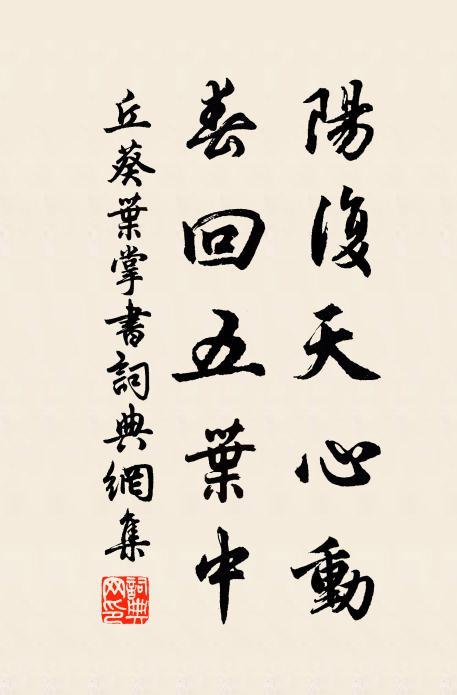 陽復天心動
春回五葉中
丘葵葉掌書詞典網集
詞典網印